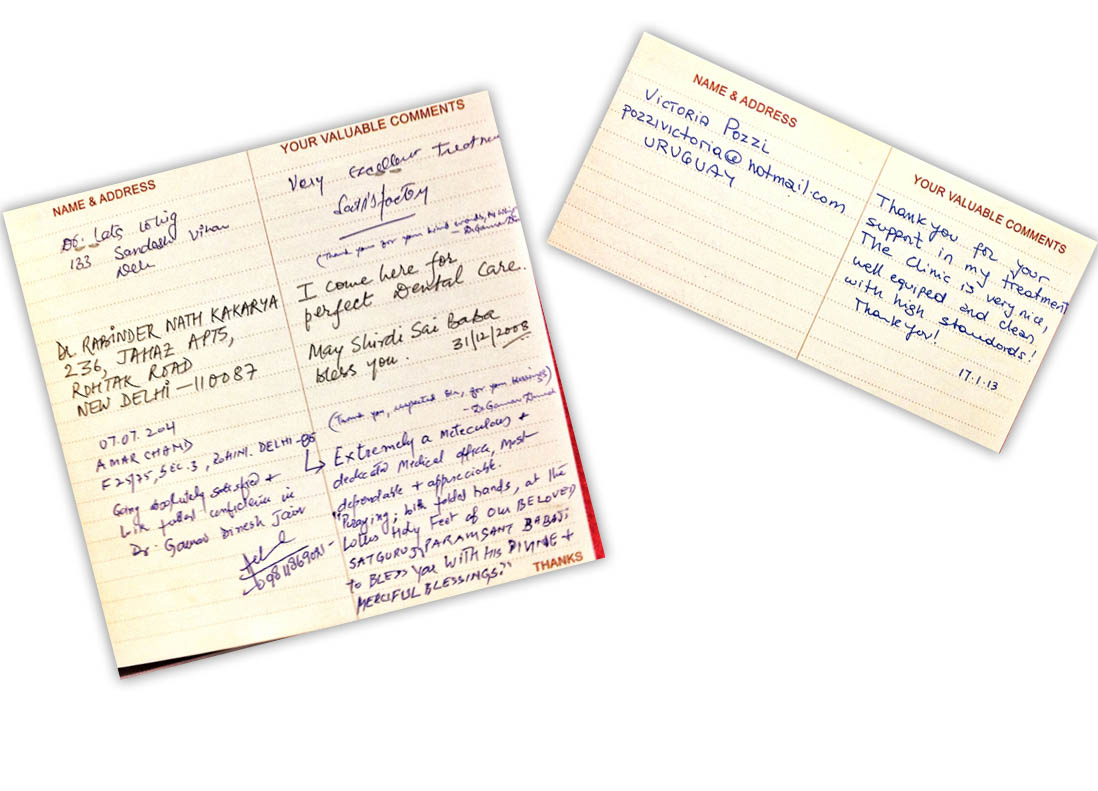 NAME & ADDRESS
Dr. Lata
133 Sandesh Vihar
Delhi
Dr. RABINDER NATH KAKARYA
236, JAHAZ APTS,
ROHTAK ROAD
NEW DELHI - 110087
07.07.2014
AMAR CHAND
F25/75, SEC. 3, ROHINI, DELHI-85
Going absolutely satisfied +
with fullest confidence in
Dr. Gaurav Dinesh Jain
YOUR VALUABLE COMMENTS
Very Excellent treatmen
Satisfactory
(Thank you for your kind words,
- Dr Gaurav
I come here for
perfect Dental Care.
May Shirdi Sai Baba
bless you. 31/12/2008
(Thank you, respected Sir, for your blessings)
- Dr Gaurav
Extremely a meteculous +
dedicated Medical officer, most
dependable + appreciable.
"Praying; with folded hands, at the
Lotus Holy Feet of OUR BELOVED
SATGURUJI PARAMSANT BABAJI
to BLESS YOU WITH HIS DIVINE +
MERCIFUL BLESSINGS."
THANKS
NAME & ADDRESS
VICTORIA POZZI
pozzivictoria@hotmail.com
URUGUAY
YOUR VALUABLE COMMENTS
Thank you for your
support in my treatment
The clinic is very nice,
well equiped and clean
with high standards!
Thank you!
17.1.13